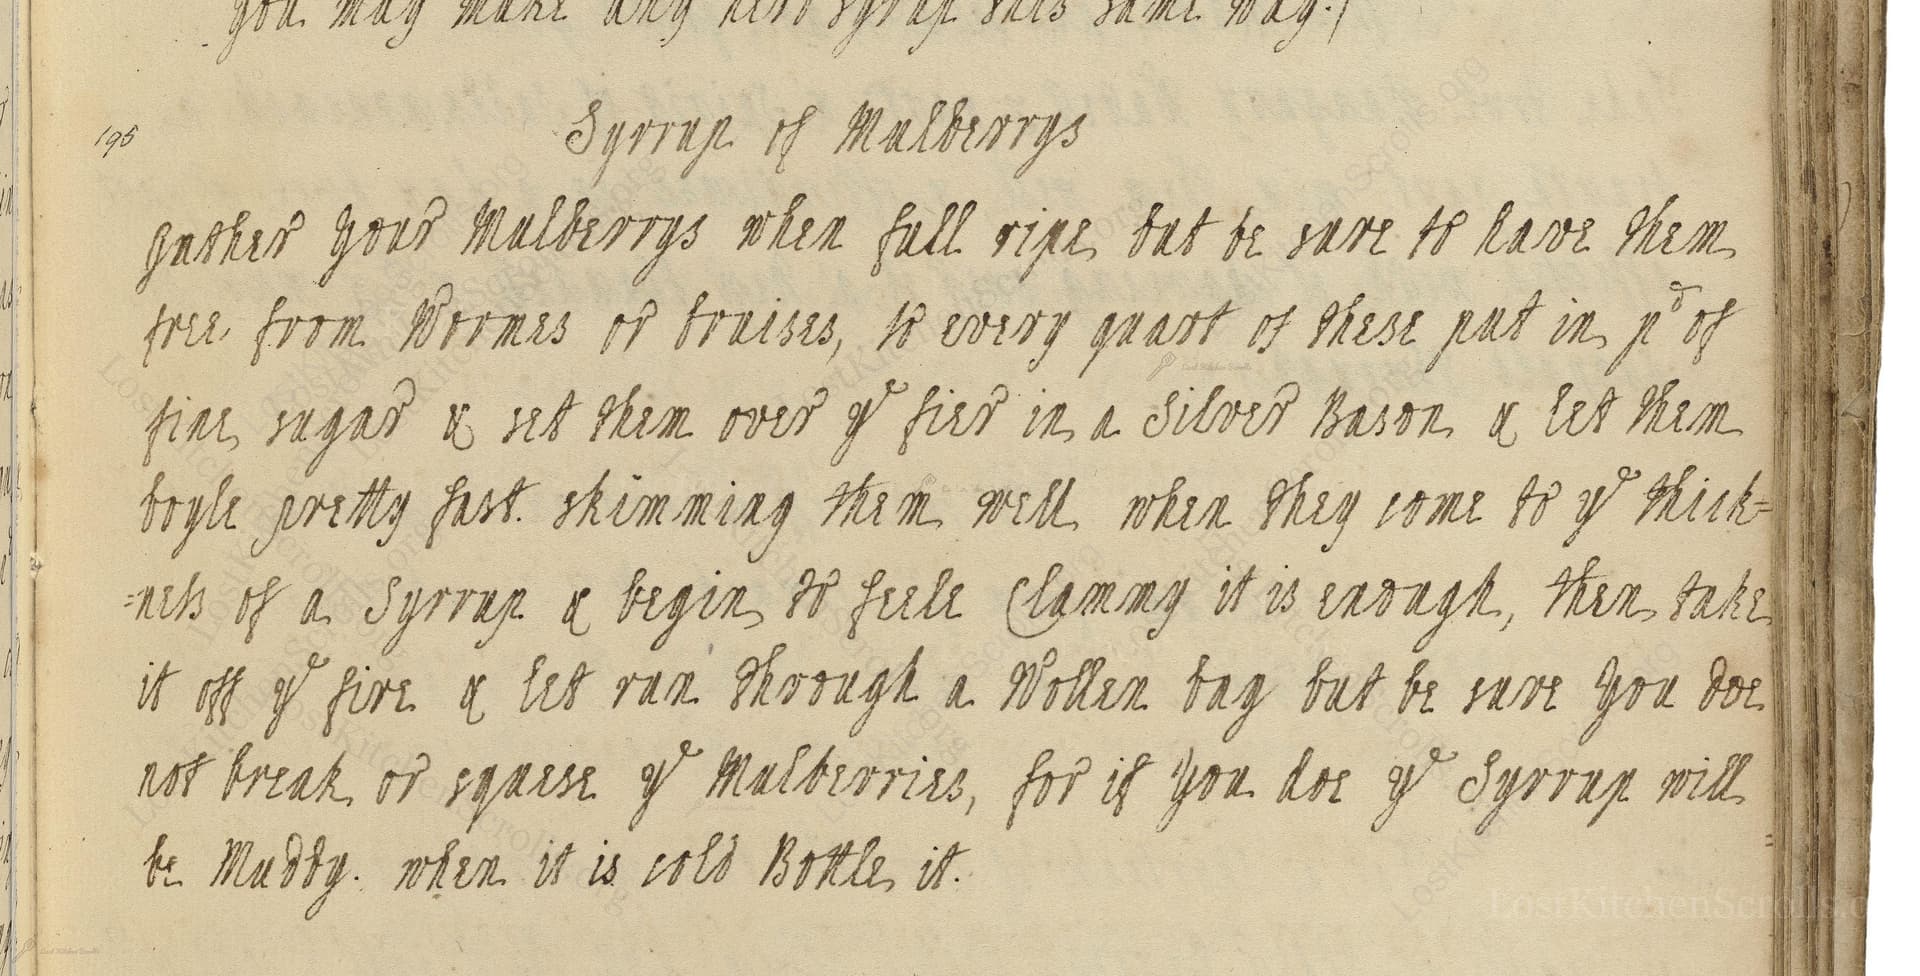 you may make any herb syrup this same way.
195
Syrrup of Mulberrys
gather your Mulberrys when full ripe but be sure to have them
free from Wormes or bruises, to every quart of these put in pd of
fine sugar & set them over ye fier in a Silver Bason & let them
boyle pretty fast. skimming them well when they come to ye thick=
=ness of a Syrrup & begin to feele Clammy it is enough, then take
it off ye fire & let run through a Wollen bag but be sure you doe
not break or squese ye Mulberries, for if you doe ye Syrrup will
be Muddy. when it is cold Bottle it.
LostKitchenScrolls.o